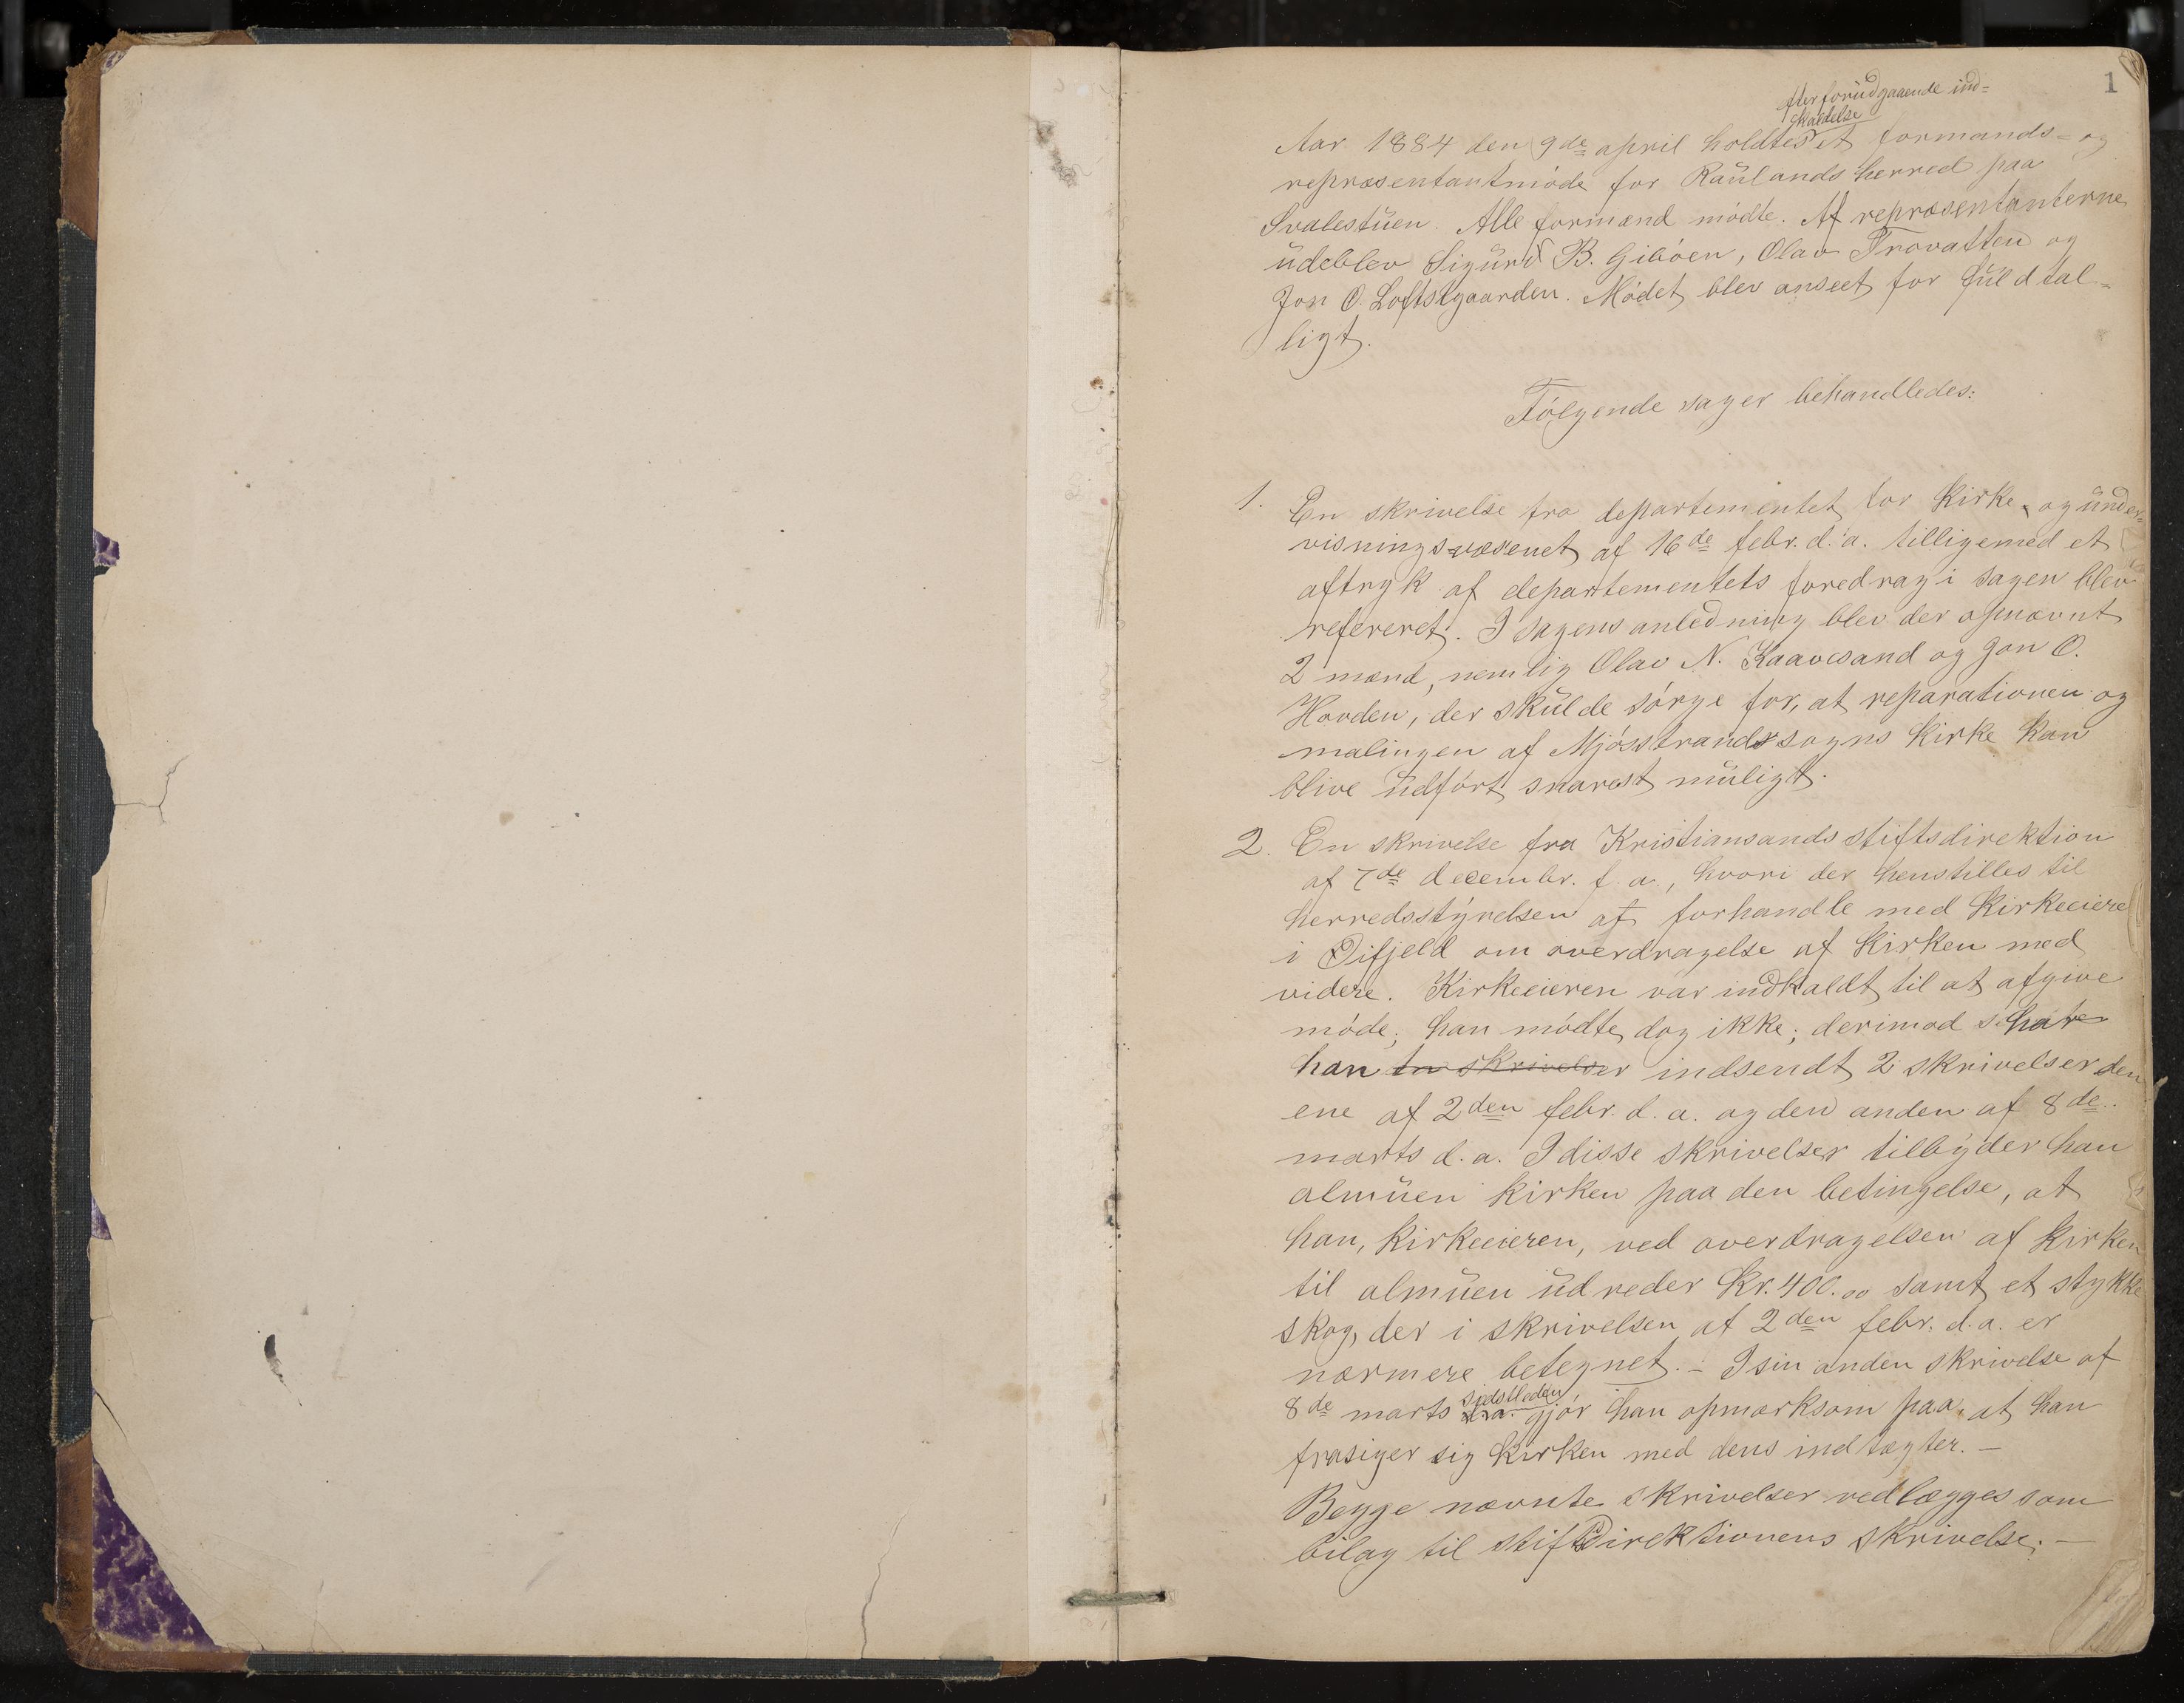 1
efter forudgaaende ind=
kaldelse
Aar 1884 den 9de april holdtes et formands- og
repræsentantmöde for Raulands herred paa
Svalestuen. Alle formænd mödte. Af repræsentanterne
udeblev Sigurd B. Giböen, Olav Trovatten og
Jon O. Loftsgaarden. Mödet blev anseet for fuldtal=
ligt.
Fölgende sager behandledes:
1. En skrivelse fra departementet for Kirke- og under=
visningsvæsenet af 16de febr. d. a. tilligemed et
aftryk af departementets foredrag i sagen blev
refereret. I sagens anledning blev der opnævnt
2 mænd, nemlig Olav N. Kaavesand og Jon O.
Hovden, der skulde sörge for, at reparationen og
malingen af Mjösstrands sogns Kirke kan
blive udfört snarest muligt.
2. En skrivelse fra Kristiansands stiftsdirektion
af 7de decembr. f. a., hvori der henstilles til
herredsstyrelsen at forhandle med Kirkeeiere
i Öifjeld om overdragelse af Kirken med
videre. Kirkeeieren var indkaldt til at afgive
möde; han mödte dog ikke; derimod har
han en skrivelser indsendt 2 skrivelser den
ene af 2den febr. d. a. og den anden af 8de
marts d. a. I disse skrivelser tilbyder han
almuen Kirken paa den betingelse, at
han, Kirkeeieren, ved overdragelsen af Kirken
til almuen udreder Kr. 400.00 samt et stykke
skog, der i skrivelsen af 2den febr. d. a. er
nærmere betegnet. - I sin anden skrivelse af
sidstleden
8de marts d. a. gjör han opmærksom paa, at han
frasiger sig Kirken med dens indtægter. -
Begge nævnte skrivelser vedlægges som
bilag til stiftsdirektionens skrivelse. -